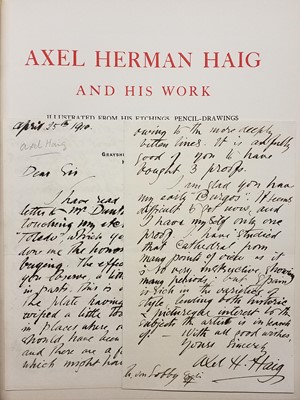 AXEL HERMAN HAIG
AND HIS WORK
ILLUSTRATED FROM HIS ETCHINGS, PENCIL-DRAWINGS
April 25th 1910.
Axel Haig
GRAYSH
Dear Sir
I have read
letter to Mr
touching my
Toledo which yo
done me the hono
buying. The effec
you observe a litt
in parts. This is
the plate having
wiped a little too
in places where
should have been
and there are a f
which might hav
owing to the more deeply
bitten lines. It is awfully
good of you to have
bought 3 proofs.
I am glad you have
my early Burgos. It seems
difficult to get now, and
I have myself only one
proof. I have studied
that Cathedral from
many points of view as it
is so very instructive showing
many periods, but Spain
is rich in the varieties of
style, lending both historic
& picturesque interest to the
subjects the artist is in search
of. With all good wishes,
Yours Sincerely
Axel H. Haig